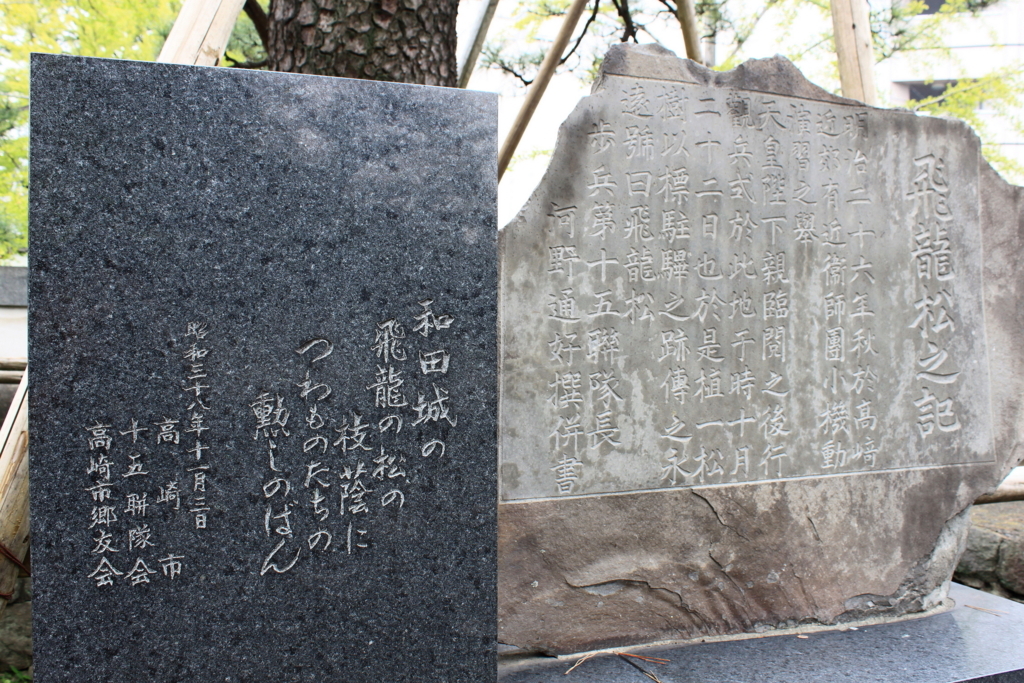 飛龍松之記
明治二十六年秋於髙﨑
近郊有近衞師團小機動
演習之擧
天皇陛下親臨閲之後行
觀兵式於此地于時十月
二十二日也於是植一松
樹以標駐驆之跡傳之永
遠號曰飛龍松
歩兵第十五聯隊長
河野通好撰併書
和田城の
飛龍の松の
枝蔭に
つわものたちの
勲しのばん
昭和三十八年十一月三日
高崎市
十五聯隊会
高崎市郷友会